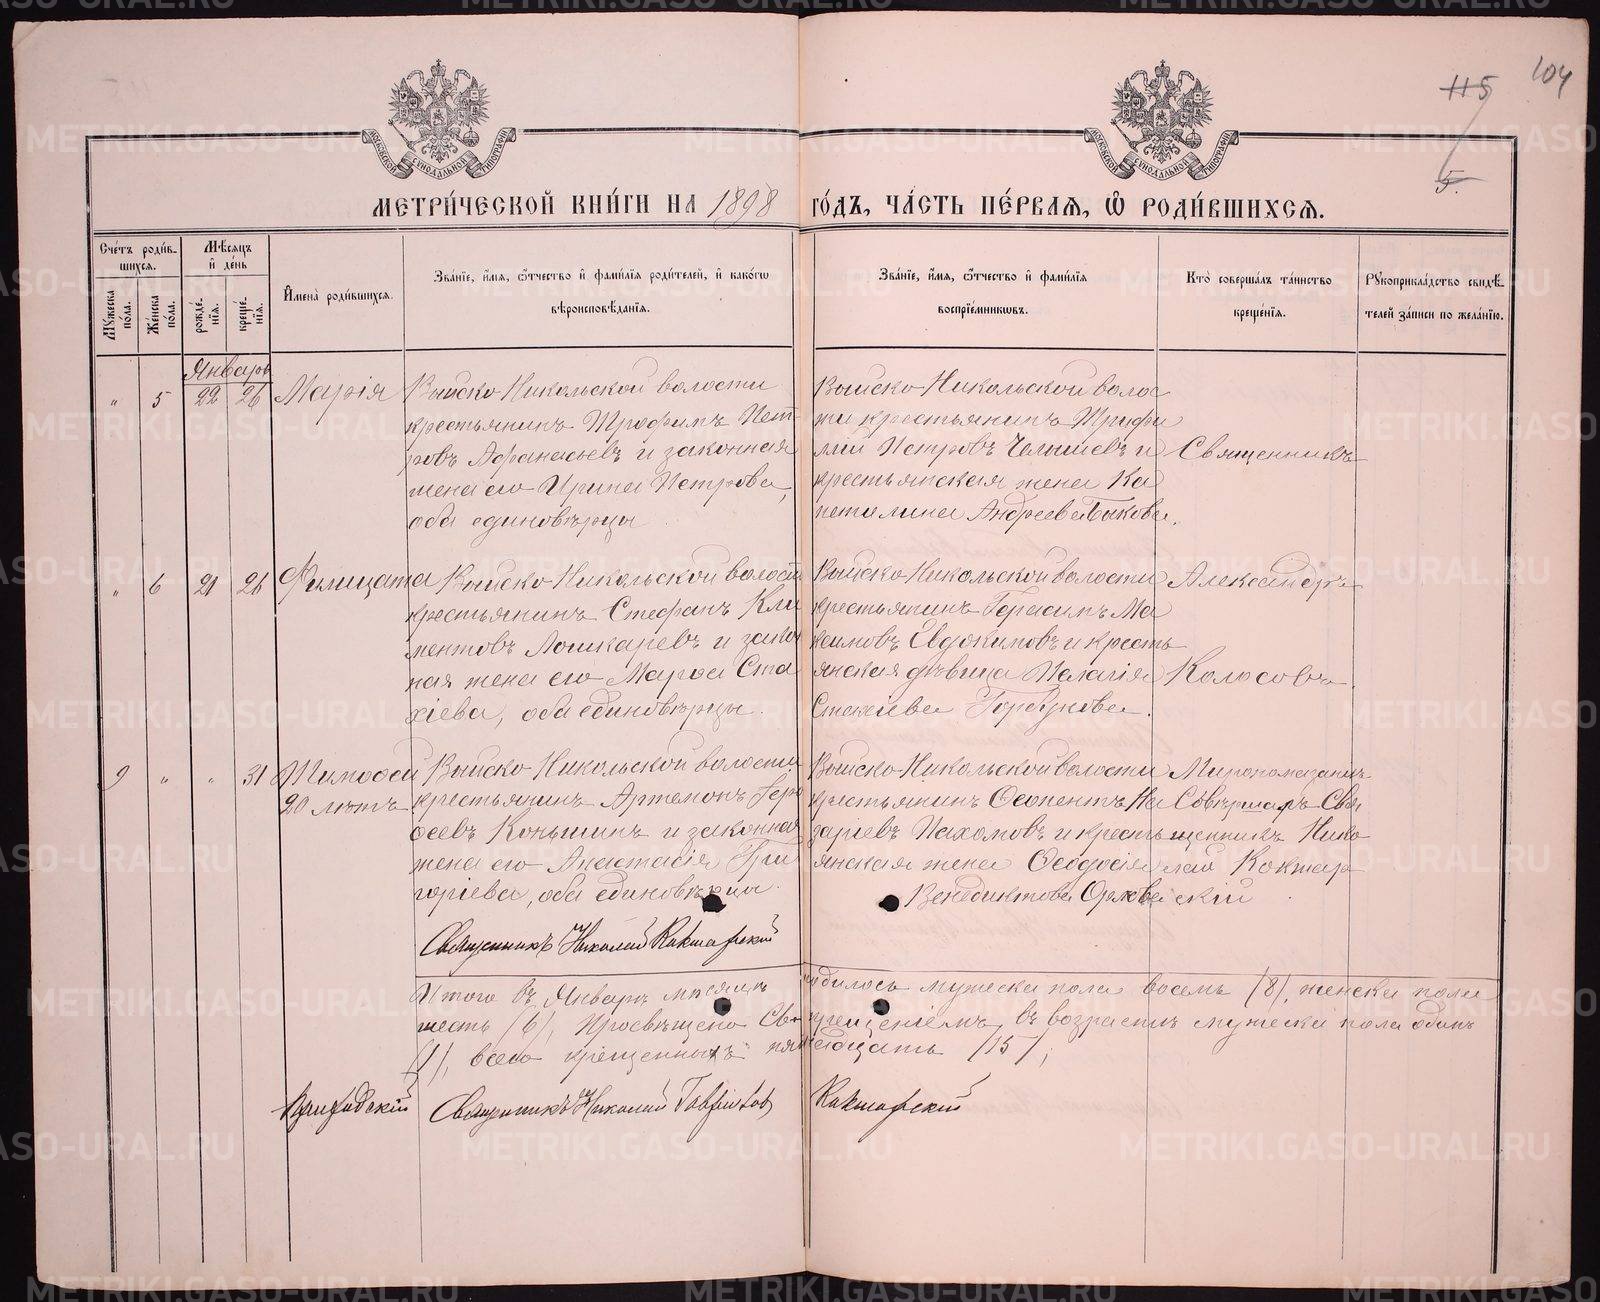 115
104
5.
МОСКОВСКОЙ СѴНОДАЛЬНОЙ ТИПОГРАФІИ
МОСКОВСКОЙ СѴНОДАЛЬНОЙ ТИПОГРАФІИ
МЕТРИ́ЧЕСКОЙ КНИ́ГИ НА 1898 ГО́ДЪ, ЧА́СТЬ ПЕ́РВАЯ, Ѡ РОДИ́ВШИХСЯ.
Сче́тъ роди́в-
шихся.
Мѣ́сяцъ
и де́нь
Му́жеска по́ла.
Же́нска по́ла.
рожде́-
нїя.
креще́-
нїя.
И҆мена̀ роди́вшихся.
Зва́нїе, и҆́мя, ѻ҆́тчество и҆ фами́лїя роди́телей, и҆ како́гѡ
вѣроисповѣ́данїя.
Зва́нїе, и҆́мя, ѻ҆́тчество и҆ фами́лїя
воспрїе́мникѡвъ.
Кто̀ соверша́лъ та́инство
креще́нїя.
Рукоприкла́дство свидѣ́-
телей за́писи по жела́нїю.
Январь
" 5 22 26 Марія
Выйско-Никольской волости
крестьянинъ Трофимъ Пет-
ровъ Афанасьевъ и законная
жена его Ирина Петрова,
оба единовѣрцы
Выйско-Никольской волос
ти крестьянинъ Трифи
лій Петровъ Челышевъ и
крестьянская жена Ка
питалина Андреева Быкова.
Священникъ
" 6 21 26 Филицата
Выйско-Никольской волости
крестьянинъ Стефанъ Кли
ментовъ Лошкаревъ и закон
ная жена его Марѳа Ста
хіева, оба единовѣрцы.
Выйско-Никольской волости
крестьянинъ Герасимъ Ма
ксимовъ Евдокимовъ и кресть
янская дѣвица Пелагія
Стахіева Горбунова.
Александръ
Колосовъ.
9 " " 31 Тимофей
20 лѣтъ
Выйско-Никольской волости
крестьянинъ Артемонъ Геро
ѳеевъ Коньшинъ и законная
жена его Анастасія Гри
горіева, оба единовѣрцы.
Выйско-Никольской волости
крестьянинъ Ѳеопентъ На
заріевъ Пахомовъ и кресть
янская жена Ѳеодосія
Венедиктова Орлова
Миропомазаніе
Совершалъ Свя
щенникъ Нико
лай Кокшар
скій
Священникъ Николай Кокшарскій
Итого въ Январѣ мѣсяцѣ родилось мужеска пола восемь (8), женска пола
шесть (6), Просвѣщено Св. крещеніемъ въ возрастѣ мужеска пола одинъ
(1), всего крещенныхъ пятнадцать (15);
Приходскій Священникъ Николай Гавриловъ Кокшарскій
METRIKI.GASO-URAL.RU